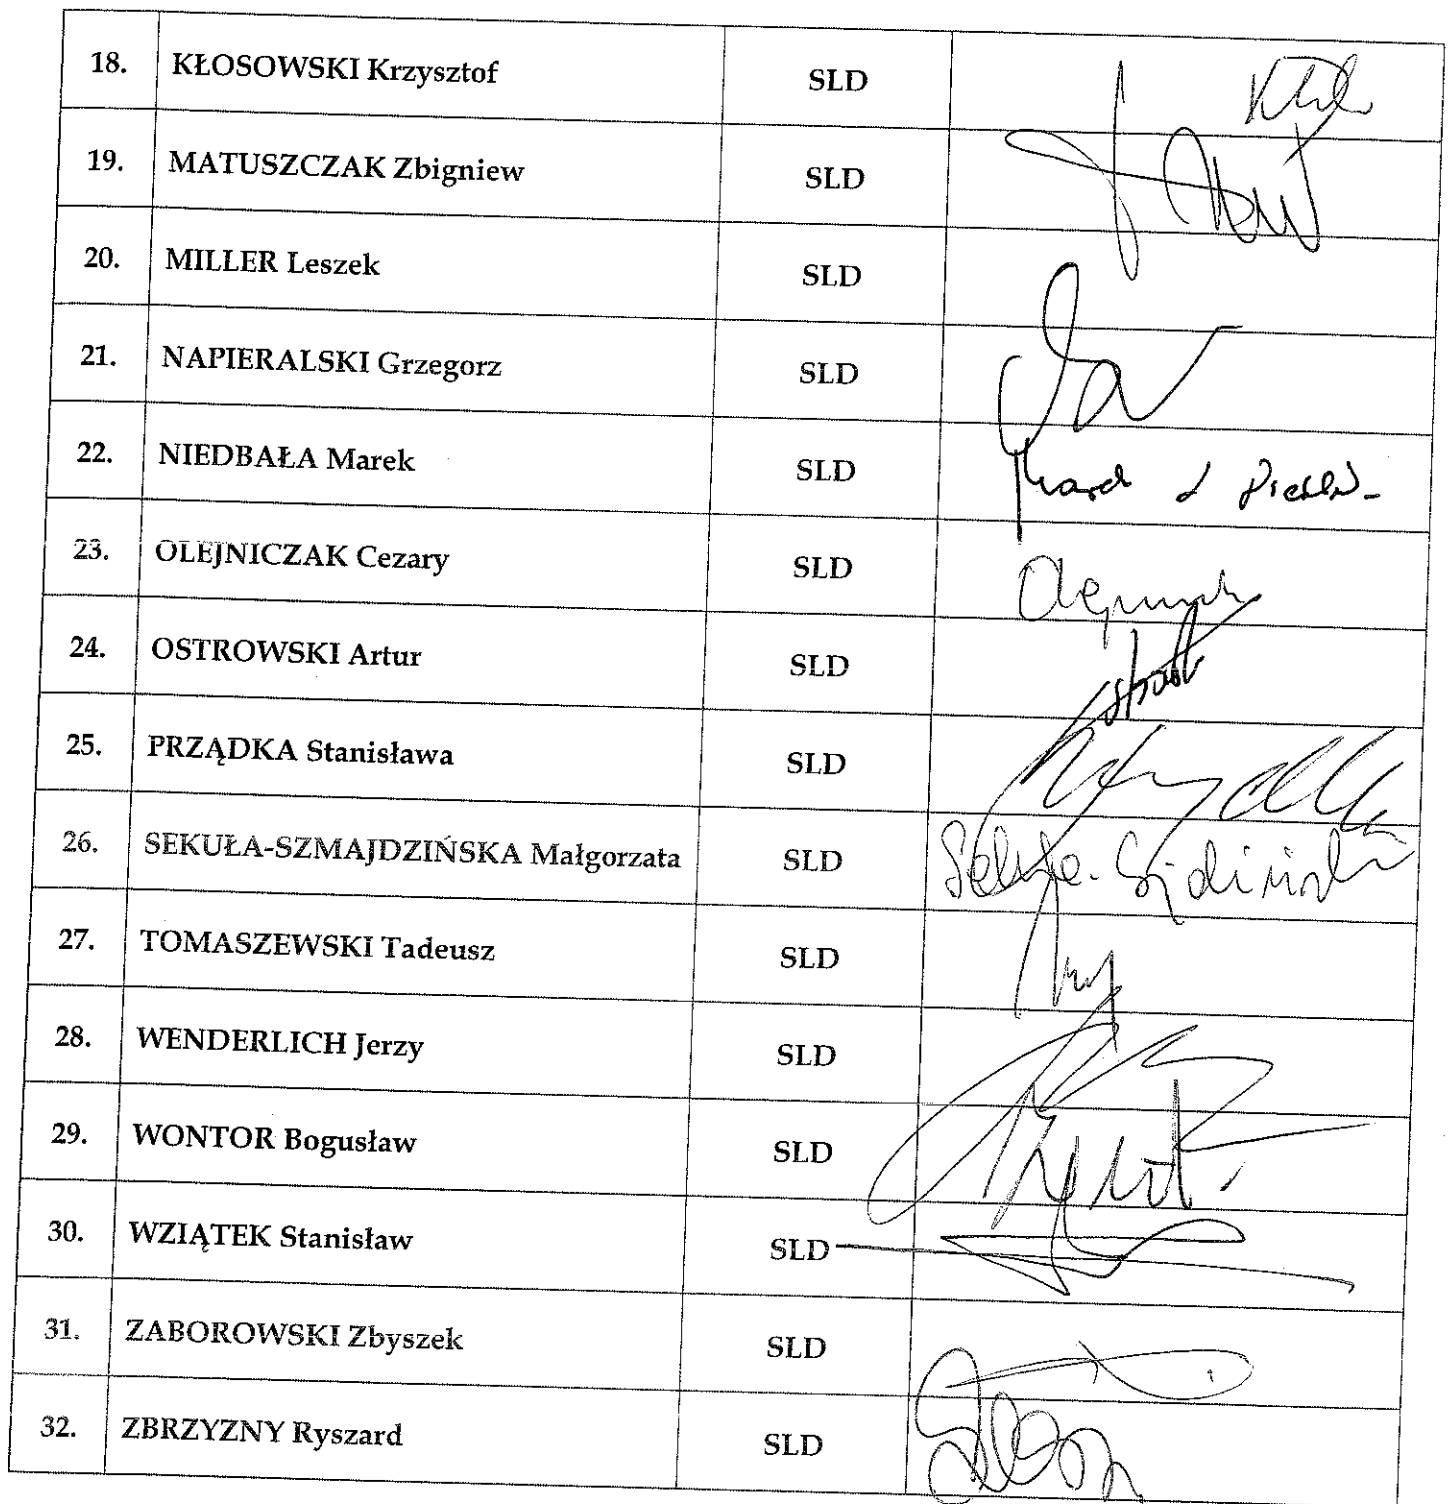 18. KŁOSOWSKI Krzysztof SLD
19. MATUSZCZAK Zbigniew SLD
20. MILLER Leszek SLD
21. NAPIERALSKI Grzegorz SLD
22. NIEDBAŁA Marek SLD
23. OLEJNICZAK Cezary SLD
24. OSTROWSKI Artur SLD
25. PRZĄDKA Stanisława SLD
26. SEKUŁA-SZMAJDZIŃSKA Małgorzata SLD
27. TOMASZEWSKI Tadeusz SLD
28. WENDERLICH Jerzy SLD
29. WONTOR Bogusław SLD
30. WZIĄTEK Stanisław SLD
31. ZABOROWSKI Zbyszek SLD
32. ZBRZYZNY Ryszard SLD